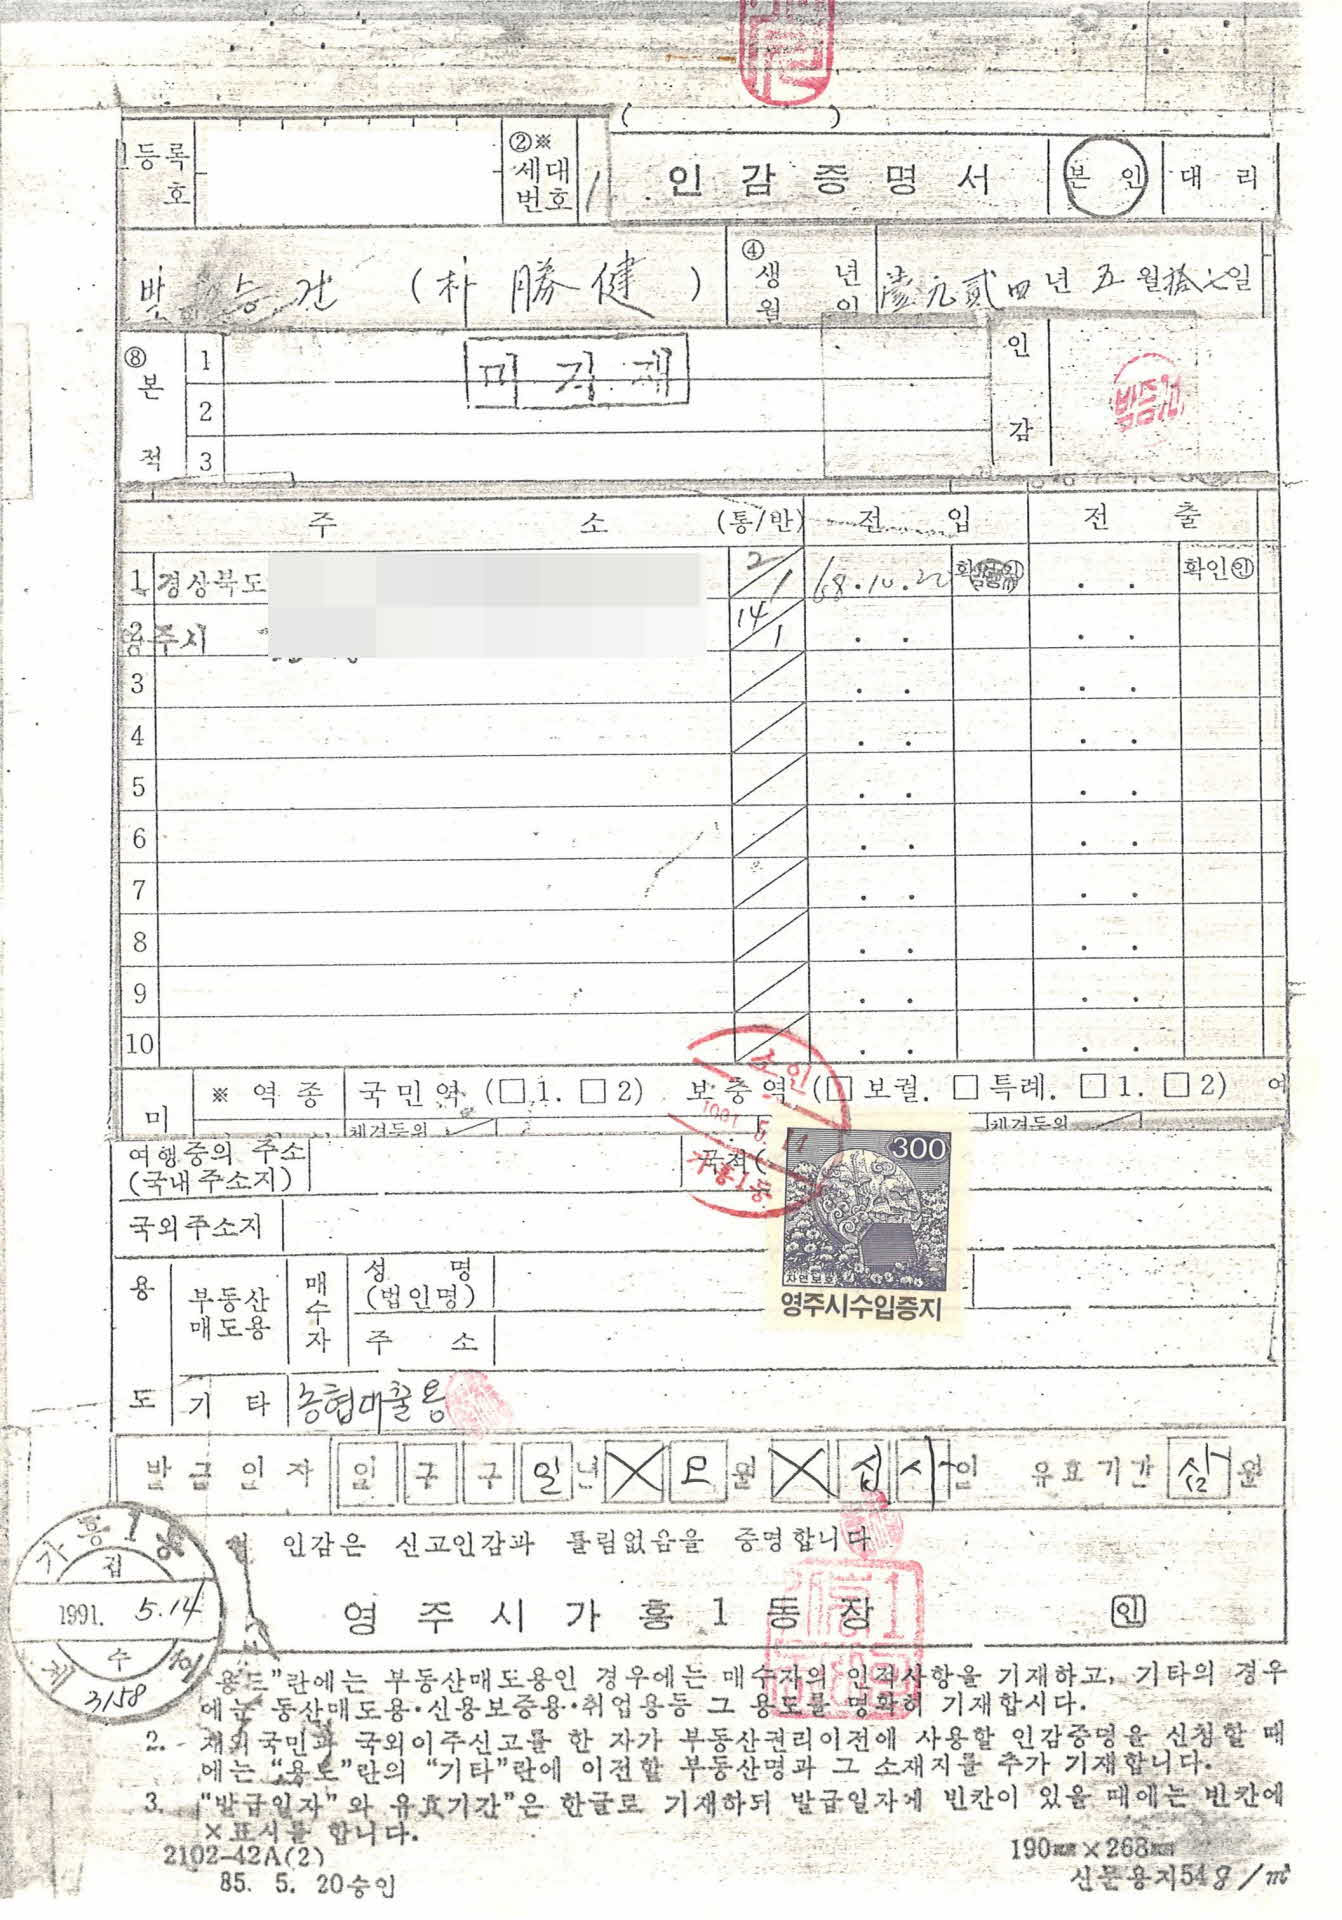 ( )
등록
호
②※
세대
번호
1
인 감 증 명 서
본 인
대 리
박 승 건 (朴 勝 健)
④
생 년
월 일
元貳四年 五 월 拾七일
⑧
본
적
1
2
3
미 기 재
인
감
주 소 (통/반) 전 입 전 출
1 경상북도 2/1 68.10.22 확인 . . 확인㊞
2 영주시 14/1 . . . .
3 . . . .
4 . . . .
5 . . . .
6 . . . .
7 . . . .
8 . . . .
9 . . . .
10 . . . .
미 ※ 역 종 국 민 역 (□1. □2) 보 충 역 (□ 보궐. □ 특례. □1. □2) 여
소인
1991 5. 14
가흥1동
여행중의 주소
(국내주소지)
국적(
국외주소지
300
자연보호
영주시수입증지
용
도
부동산
매도용
매
수
자
성 명
(법인명)
주 소
기 타 농협대출용
발 급 일 자 일 구 구 일 년 X 오 월 X 십 사 일 유효기간 삼 월
인감은 신고인감과 틀림없음을 증명합니다
영 주 시 가 흥 1 동 장 인
가흥1동
접
1991. 5.14
수
제 3158 호
용도”란에는 부동산매도용인 경우에는 매수자의 인적사항을 기재하고, 기타의 경우
에는 동산매도용·신용보증용·취업용등 그 용도를 명확히 기재합시다.
2. 재외국민과 국외이주신고를 한 자가 부동산권리이전에 사용할 인감증명을 신청할 때
에는 “용도”란의 “기타”란에 이전할 부동산명과 그 소재지를 추가 기재합니다.
3. “발급일자”와 유효기간”은 한글로 기재하되 발급일자게 빈칸이 있을 때에는 빈칸에
×표시를 합니다.
2102-42A(2)
85. 5. 20승인
190㎜×268㎜
신문용지54g/㎡